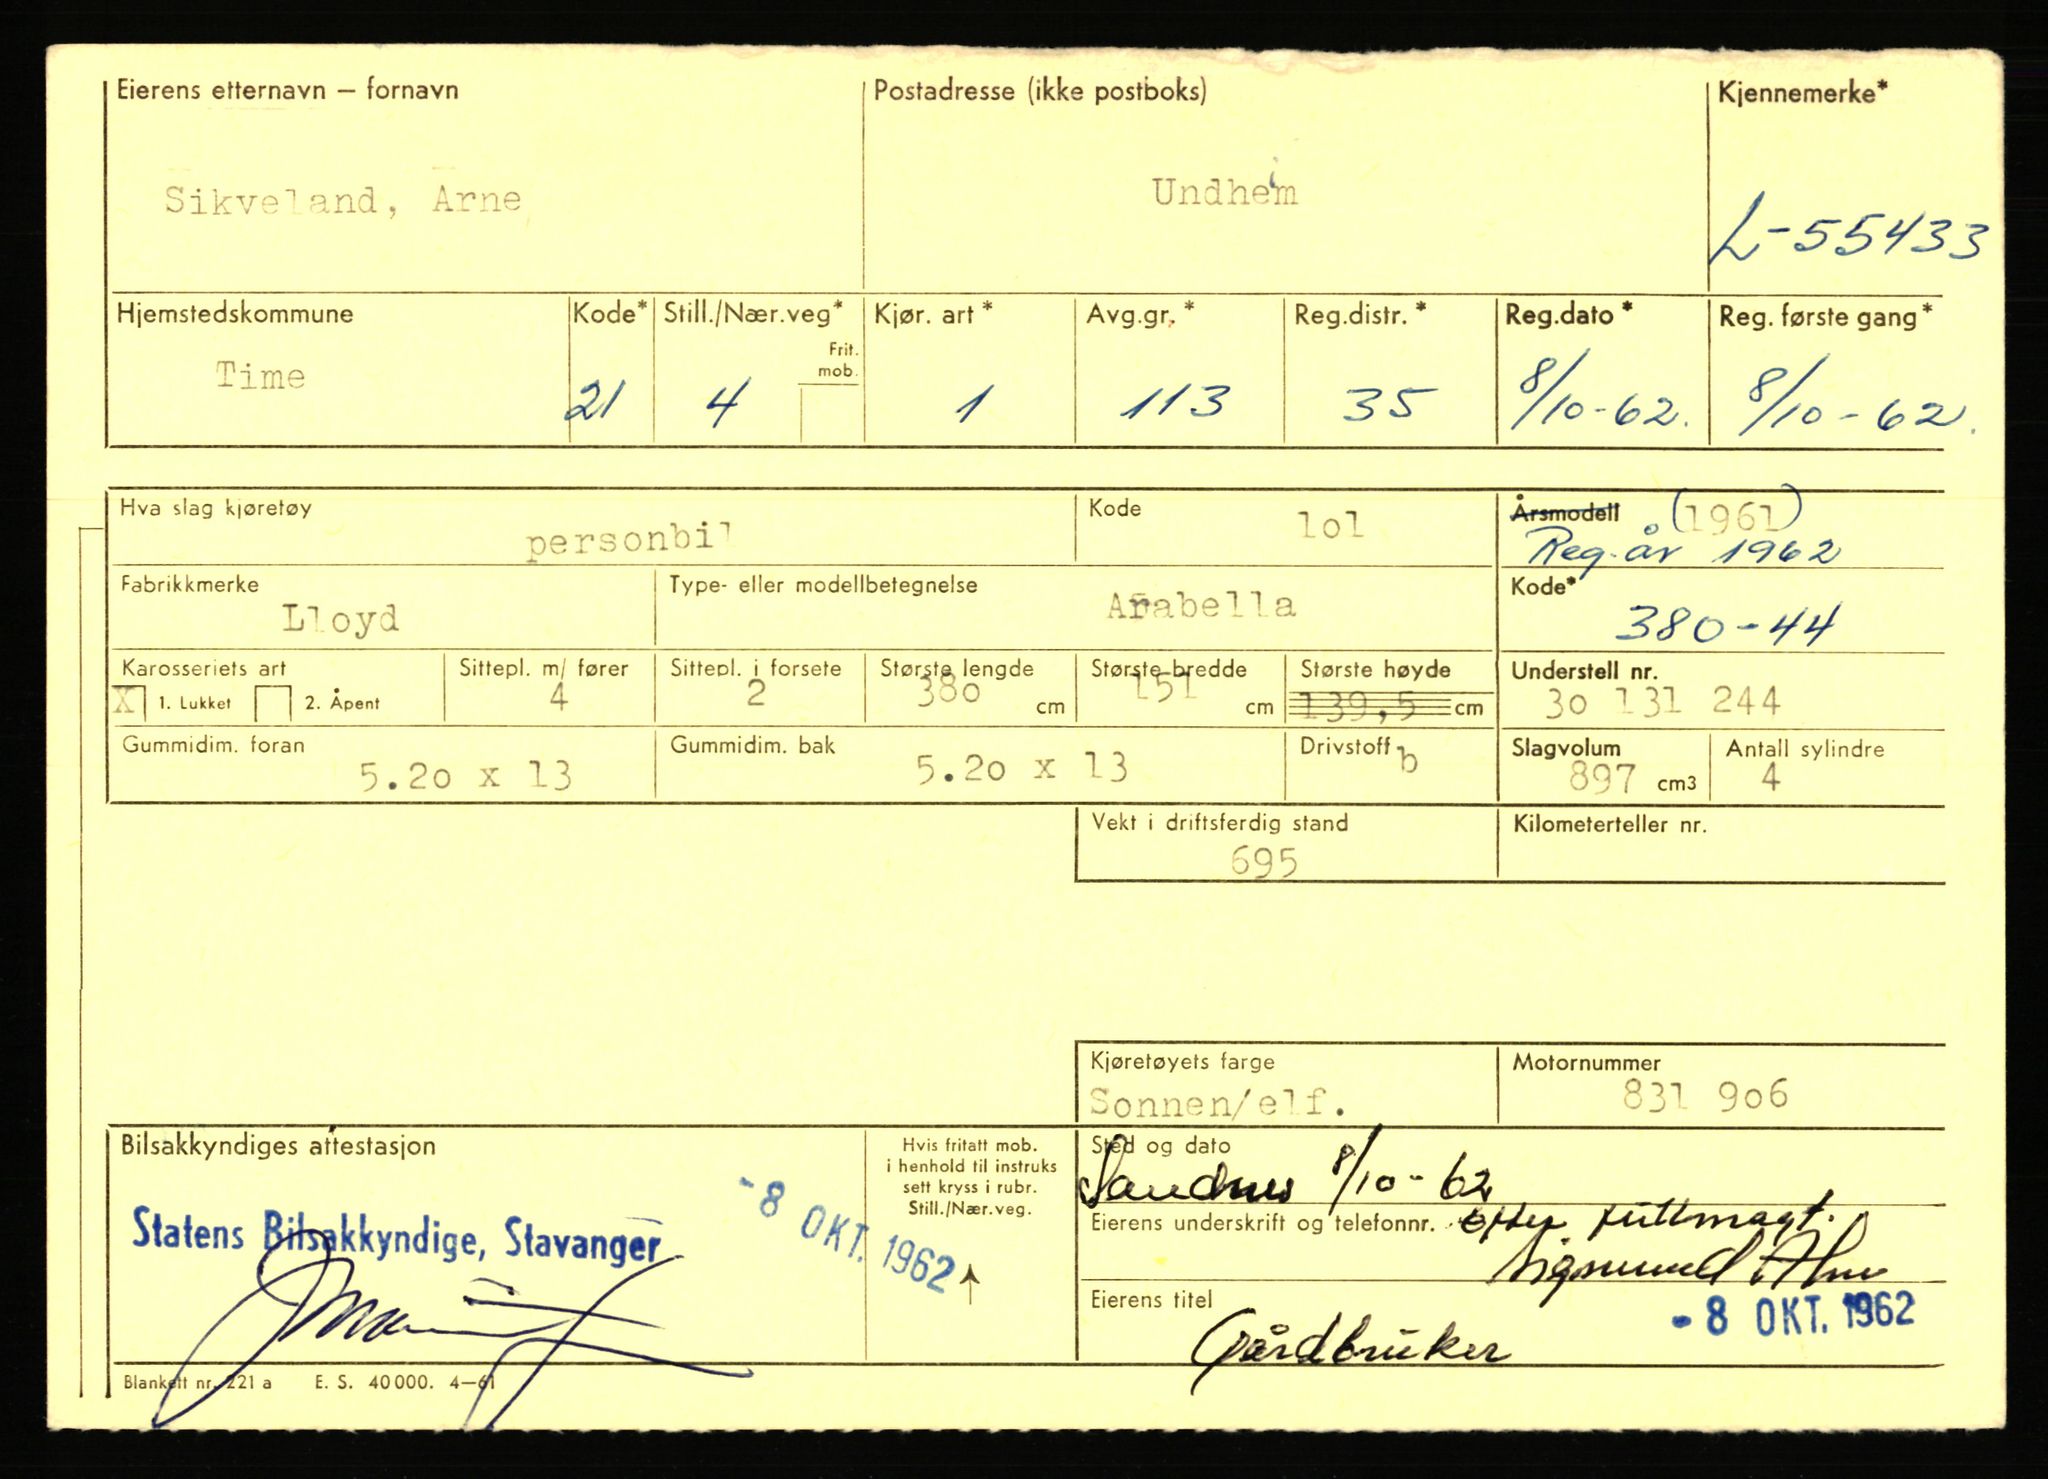 Eierens etternavn – fornavn Postadresse (ikke postboks) Kjennemerke*
Sikveland, Arne Undheim L-55433
Hjemstedskommune Kode* Still./Nær.veg* Kjør. art* Avg.gr.* Reg.distr.* Reg.dato* Reg. første gang*
Frit. mob.
Time 21 4 1 113 35 8/10-62. 8/10-62.
Hva slag kjøretøy Kode Årsmodell (1961)
personbil lol Reg. år 1962
Fabrikkmerke Type- eller modellbetegnelse Kode*
Lloyd Arabella 380-44
Karosseriets art Sittepl. m/ fører Sittepl. i forsete Største lengde Største bredde Største høyde Understell nr.
X 1. Lukket 2. Åpent 4 2 380 cm 151 cm 139,5 cm 30 131 244
Gummidim. foran Gummidim. bak Drivstoff Slagvolum Antall sylindre
5.20 x 13 5.20 x 13 b 897 cm3 4
Vekt i driftsferdig stand Kilometerteller nr.
695
Kjøretøyets farge Motornummer
Sonnen/elf. 831 906
Bilsakkyndiges attestasjon Hvis fritatt mob. i henhold til instruks sett kryss i rubr. Still./Nær.veg. Sted og dato
Sandnes 8/10-62
Statens Bilsakkyndige, Stavanger -8 OKT. 1962
Eierens underskrift og telefonnr. efter fullmagt.
Sigmund
Eierens titel -8 OKT. 1962
Gårdbruker
Blankett nr. 221 a E. S. 40 000. 4–61